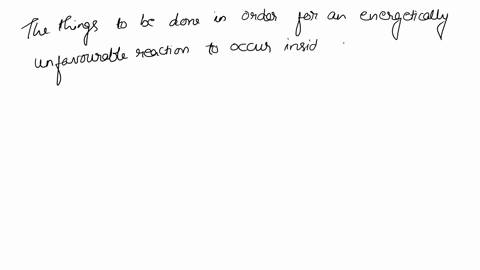 The things to be done in order for an energetically
unfavourable reaction to occur insid